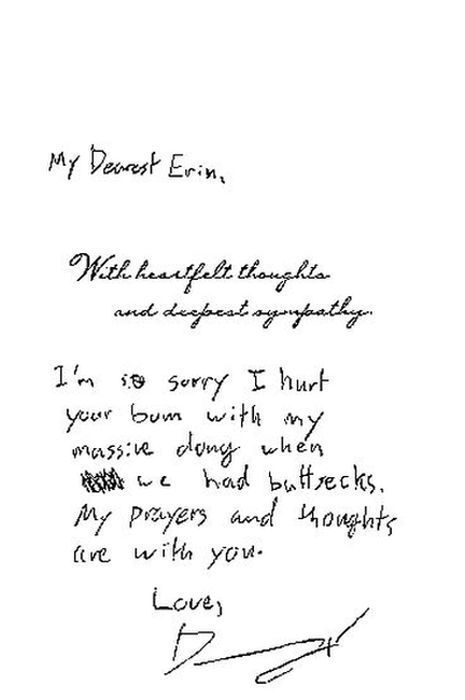 My Dearest Erin,
With heartfelt thoughts
and deepest sympathy.
I'm so sorry I hurt
your bum with my
massive dong when
we had buttsecks.
My prayers and thoughts
are with you.
Love,